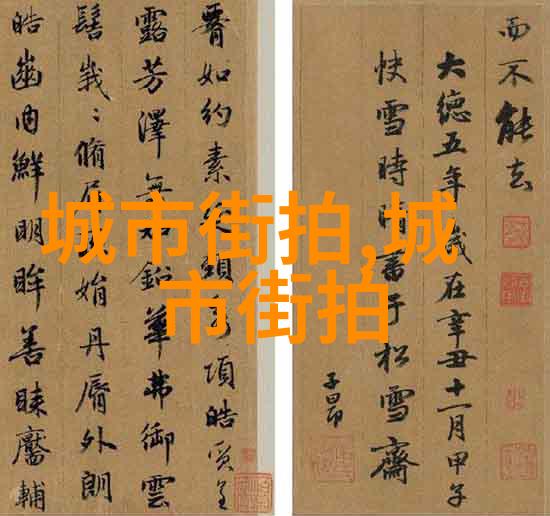 城市街拍,城
市街拍
如約素延頸秀項皓質呈
露芳澤無加鉛華弗御雲
髻峩〻脩眉聯娟丹脣外朗
皓齒内鮮明眸善睞靨輔
而不能去
大德五年歲在辛丑十一月甲子
快雪時晴書于松雪齋
子昂